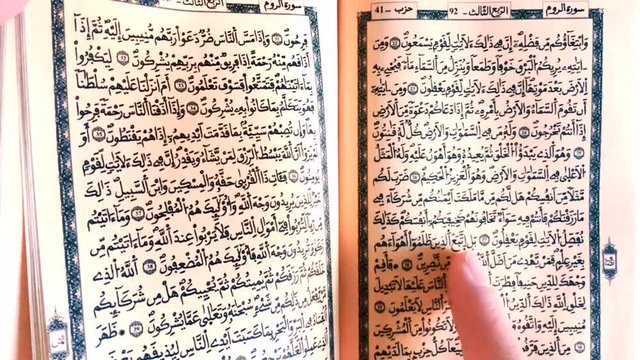 سورة الروم الربع الثالث - 92 حزب - 41
وَابْتِغَاؤُكُم مِّن فَضْلِهِ إِنَّ فِي ذَلِكَ لَآيَاتٍ لِّقَوْمٍ يَسْمَعُونَ وَمِنَ
ايَاتِهِ يُرِيكُمُ الْبَرْقَ خَوْفًا وَطَمَعًا وَيُنَزِّلُ مِنَ السَّمَاءِ مَاءً فَيُحْيِي بِهِ
الْأَرْضَ بَعْدَ مَوْتِهَا إِنَّ فِي ذَلِكَ لَآيَاتٍ لِّقَوْمٍ يَعْقِلُونَ وَمِنَ ايَاتِهِ
أَن تَقُومَ السَّمَاءُ وَالْأَرْضُ بِأَمْرِهِ ثُمَّ إِذَا دَعَاكُمْ دَعْوَةً مِّنَ الْأَرْضِ
إِذَا أَنتُمْ تَخْرُجُونَ وَلَهُ مَن فِي السَّمَوَاتِ وَالْأَرْضِ كُلٌّ لَّهُ قَانِتُونَ
وَهُوَ الَّذِي يَبْدَؤُا الْخَلْقَ ثُمَّ يُعِيدُهُ وَهُوَ أَهْوَنُ عَلَيْهِ وَلَهُ الْمَثَلُ
الْأَعْلَى فِي السَّمَوَاتِ وَالْأَرْضِ وَهُوَ الْعَزِيزُ الْحَكِيمُ ضَرَبَ لَكُم
مَّثَلًا مِّنْ أَنفُسِكُمْ هَل لَّكُم مِّن مَّا مَلَكَتْ أَيْمَانُكُم مِّن شُرَكَاءَ فِي
مَا رَزَقْنَاكُمْ فَأَنتُمْ فِيهِ سَوَاءٌ تَخَافُونَهُمْ كَخِيفَتِكُمْ أَنفُسَكُمْ كَذَلِكَ
نُفَصِّلُ الْآيَاتِ لِقَوْمٍ يَعْقِلُونَ بَلِ اتَّبَعَ الَّذِينَ ظَلَمُوا أَهْوَاءَهُم
بِغَيْرِ عِلْمٍ فَمَن يَهْدِي مَنْ أَضَلَّ اللَّهُ مِّن نَّاصِرِينَ فَأَقِمْ
وَجْهَكَ لِلدِّينِ حَنِيفًا فِطْرَتَ النَّاسَ عَلَيْهَا لَا تَبْدِيلَ
لِخَلْقِ اللَّهِ ذَلِكَ الدِّينُ النَّاسِ لَا يَعْلَمُونَ
مُنِيبِينَ إِلَيْهِ وَاتَّقُوهُ وَأَقِيمُوا وَلَا تَكُونُوا مِنَ الْمُشْرِكِينَ
مِنَ الَّذِينَ فَرَّقُوا كُلُّ حِزْبٍ بِمَا لَدَيْهِمْ
سورة الروم الربع الثالث
فَرِحُونَ وَإِذَا مَسَّ النَّاسَ ضُرٌّ دَعَوْا رَبَّهُم مُّنِيبِينَ إِلَيْهِ ثُمَّ إِذَا
أَذَاقَهُم مِّنْهُ رَحْمَةً إِذَا فَرِيقٌ مِّنْهُم بِرَبِّهِمْ يُشْرِكُونَ لِيَكْفُرُوا
بِمَا آتَيْنَاهُمْ فَتَمَتَّعُوا فَسَوْفَ تَعْلَمُونَ أَمْ أَنزَلْنَا عَلَيْهِمْ سُلْطَانًا
فَهُوَ يَتَكَلَّمُ بِمَا كَانُوا بِهِ يُشْرِكُونَ وَإِذَا أَذَقْنَا النَّاسَ رَحْمَةً فَرِحُوا
بِهَا وَإِن تُصِبْهُمْ سَيِّئَةٌ بِمَا قَدَّمَتْ أَيْدِيهِمْ إِذَا هُمْ يَقْنَطُونَ
أَوَلَمْ يَرَوْا أَنَّ اللَّهَ يَبْسُطُ الرِّزْقَ لِمَن يَشَاءُ وَيَقْدِرُ إِنَّ فِي ذَلِكَ لَآيَاتٍ لِّقَوْمٍ
يُؤْمِنُونَ فَآتِ ذَا الْقُرْبَى حَقَّهُ وَالْمِسْكِينَ وَابْنَ السَّبِيلِ ذَلِكَ
خَيْرٌ لِّلَّذِينَ يُرِيدُونَ وَجْهَ اللَّهِ وَأُولَئِكَ هُمُ الْمُفْلِحُونَ وَمَا آتَيْتُم
مِّن رِّبًا لِّتُرْبُوا فِي أَمْوَالِ النَّاسِ فَلَا يَرْبُوا عِندَ اللَّهِ وَمَا آتَيْتُم مِّن
زَكَاةٍ تُرِيدُونَ وَجْهَ اللَّهِ فَأُولَئِكَ هُمُ الْمُضْعِفُونَ اللَّهُ الَّذِي
خَلَقَكُمْ ثُمَّ رَزَقَكُمْ ثُمَّ يُمِيتُكُمْ ثُمَّ يُحْيِيكُمْ هَلْ مِن شُرَكَائِكُم
مَّن يَفْعَلُ مِن ذَلِكُم مِّن شَيْءٍ سُبْحَانَهُ وَتَعَالَى عَمَّا يُشْرِكُونَ ظَهَرَ
الْفَسَادُ فِي الْبَرِّ وَالْبَحْرِ بِمَا كَسَبَتْ أَيْدِي النَّاسِ لِيُذِيقَهُم بَعْضَ